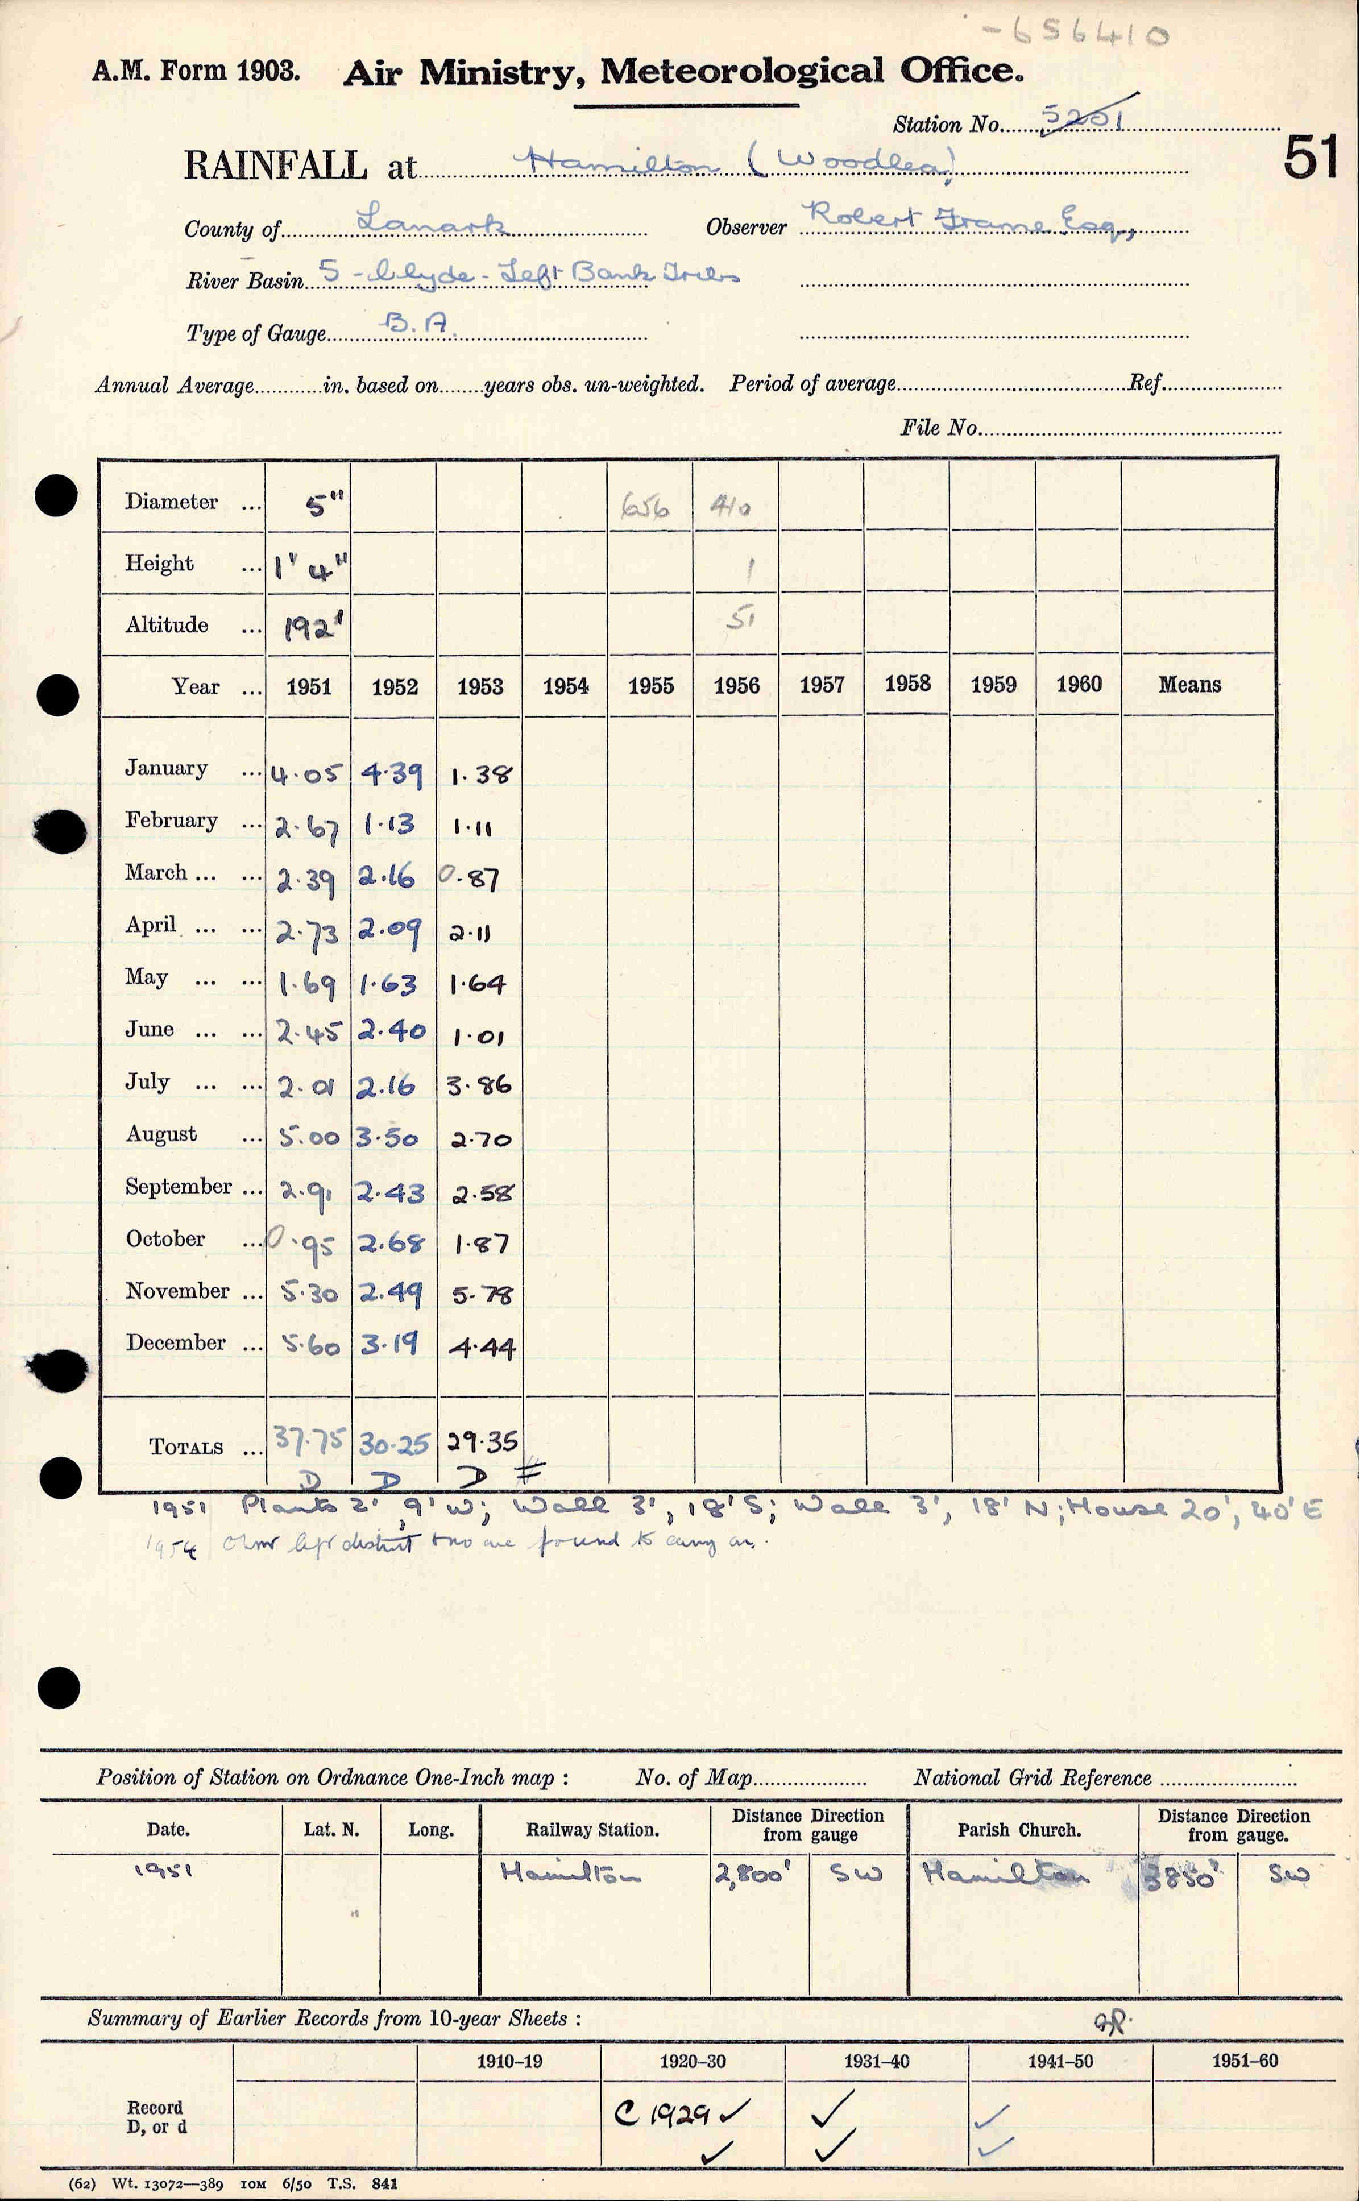 -656410
A.M. Form 1903. Air Ministry, Meteorological Office.
Station No. 5201
51
RAINFALL at Hamilton (Woodlea)
County of Lanark Observer Robert Frame Esq.,
River Basin 5 - Clyde - Left Bank Tribs
Type of Gauge B.A.
Annual Average in. based on years obs. un-weighted. Period of average Ref.
File No.
Diameter ... 5" 656 410
Height ... 1' 4" 1
Altitude ... 192' 51
Year ... 1951 1952 1953 1954 1955 1956 1957 1958 1959 1960 Means
January ... 4.05 4.39 1.38
February ... 2.67 1.13 1.11
March ... ... 2.39 2.16 0.87
April ... ... 2.73 2.09 2.11
May ... ... 1.69 1.63 1.64
June ... ... 2.45 2.40 1.01
July ... ... 2.01 2.16 3.86
August ... 5.00 3.50 2.70
September ... 2.91 2.43 2.58
October ... 0.95 2.68 1.87
November ... 5.30 2.49 5.78
December ... 5.60 3.19 4.44
TOTALS ... 37.75 30.25 29.35
D D D
1951 Plants 2', 9' W; Wall 3', 18' S; Wall 3', 18' N; House 20', 40' E
1954 left district & no one found to carry on.
Position of Station on Ordnance One-Inch map : No. of Map National Grid Reference
Date. Lat. N. Long. Railway Station. Distance Direction from gauge Parish Church. Distance Direction from gauge.
1951 Hamilton 2,800' SW Hamilton 3850' SW
Summary of Earlier Records from 10-year Sheets :
1910-19 1920-30 1931-40 1941-50 1951-60
Record C 1929 ✓ ✓ ✓
D, or d ✓ ✓ ✓
(62) Wt. 13072—389 10M 6/50 T.S. 841